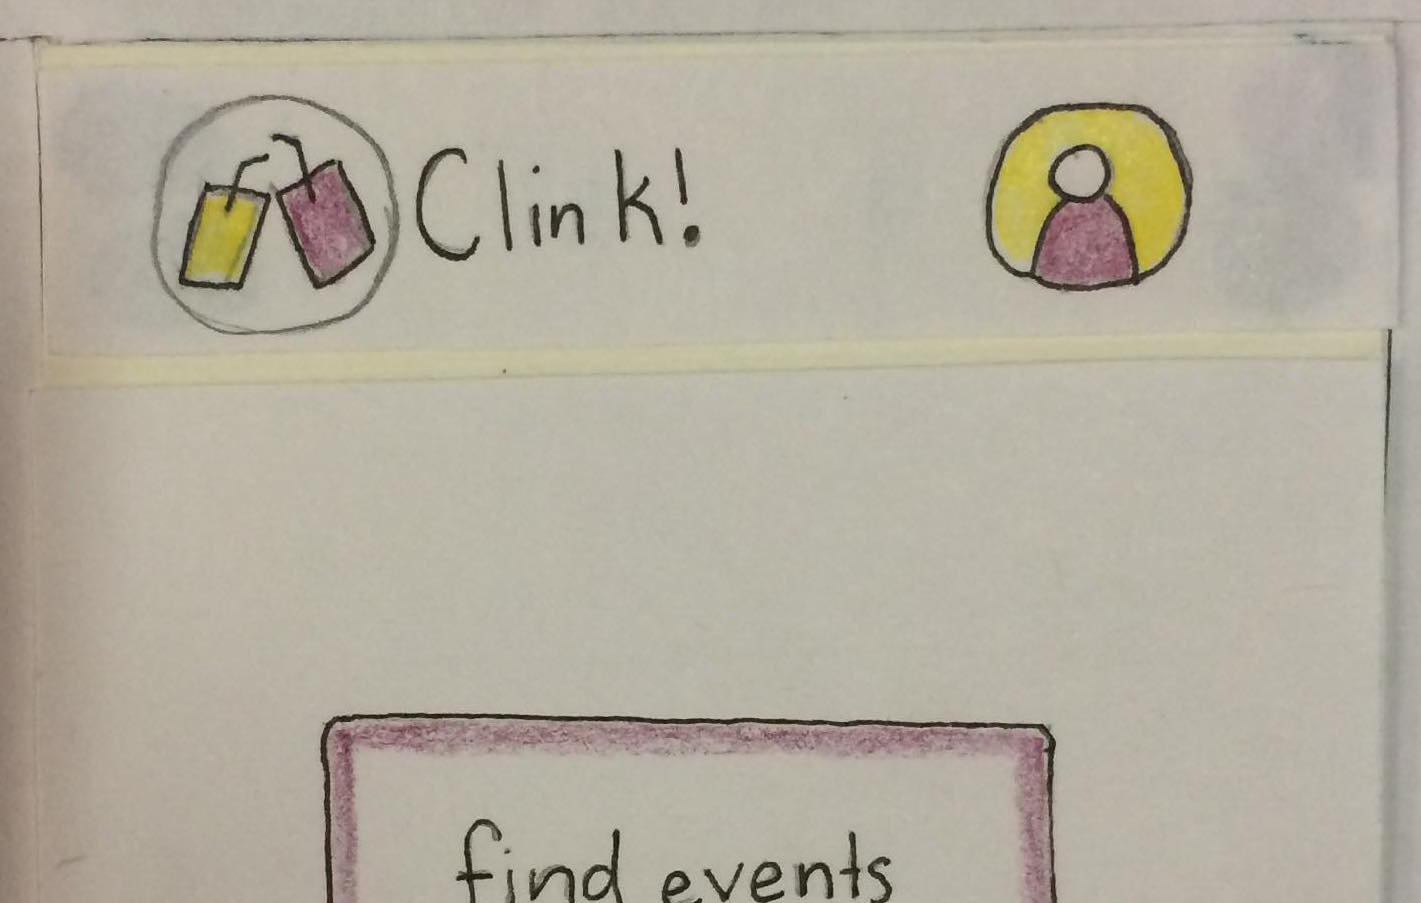 Clink!
find events